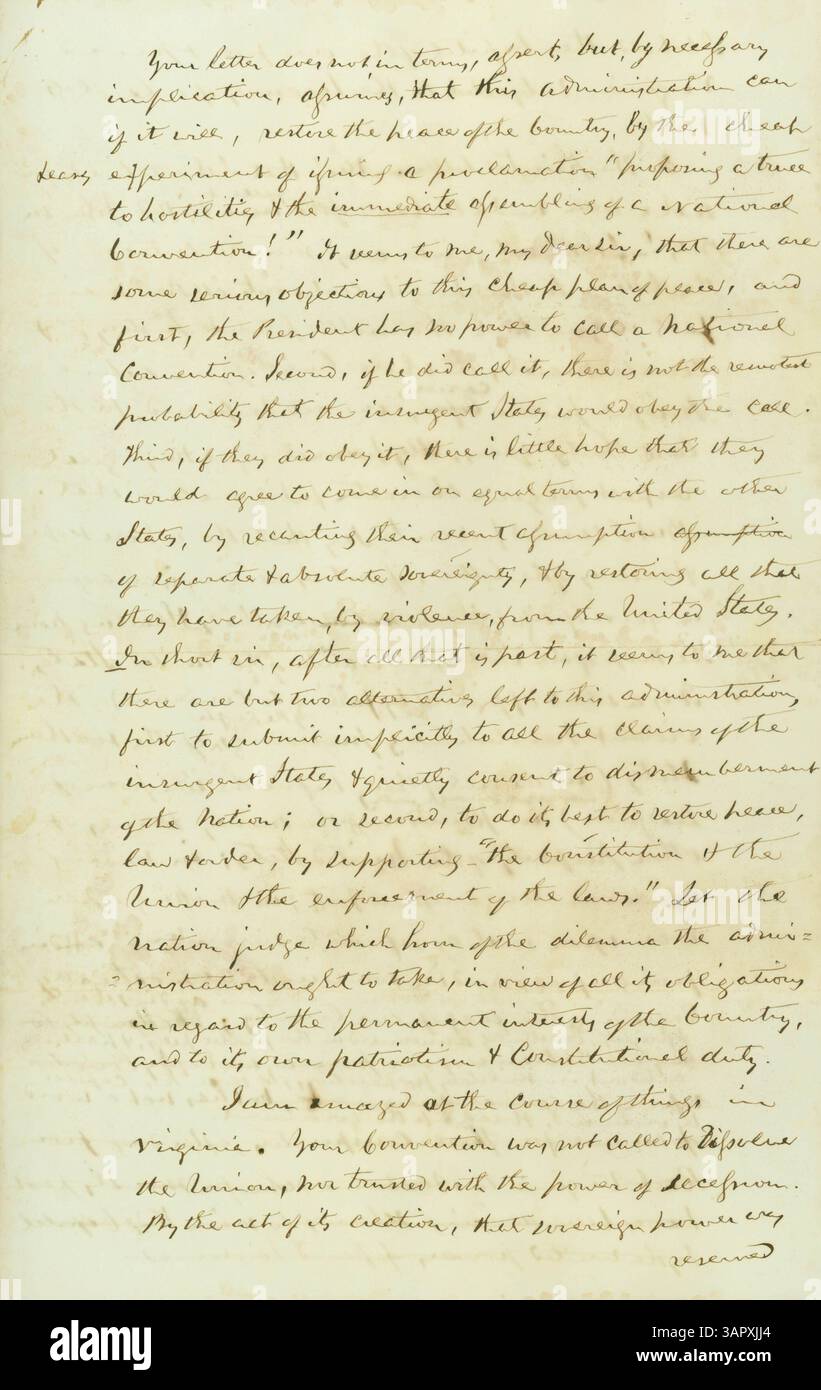 Your letter does not in terms, assert, but, by necessary
implication, assumes, that this administration can
if it will, restore the peace of the Country, by the cheap
& easy experiment of issuing a proclamation "proposing a truce
to hostilities & the immediate assembling of a National
Convention!" It seems to me, my dear sir, that there are
some serious objections to this cheap plan of peace, and
first, the President has no power to call a National
Convention. Second, if he did call it, there is not the remotest
probability that the insurgent States would obey the call.
Third, if they did obey it, there is little hope that they
would agree to come in on equal terms with the other
States, by recanting their recent assumption assumption
of separate & absolute sovereignty, & by restoring all that
they have taken, by violence, from the United States.
In short sir, after all that is past, it seems to me that
there are but two alternatives left to this administration,
first to submit implicitly to all the claims of the
insurgent States & quietly consent to dismemberment
of the Nation; or second, to do its best to restore peace,
law & order, by supporting "the Constitution & the
Union & the enforcement of the laws." Let the
nation judge which horn of the dilemma the admin=
=nistration ought to take, in view of all its obligations
in regard to the permanent interests of the Country,
and to its own patriotism & Constitutional duty.
I am amazed at the course of things in
Virginia. Your Convention was not called to Dissolve
the Union, nor trusted with the power of secession.
By the act of its creation, that sovereign power was
reserved
alamy
alamy
alamy
alamy
alamy
alamy
Image ID: 3APXJJ4
www.alamy.com